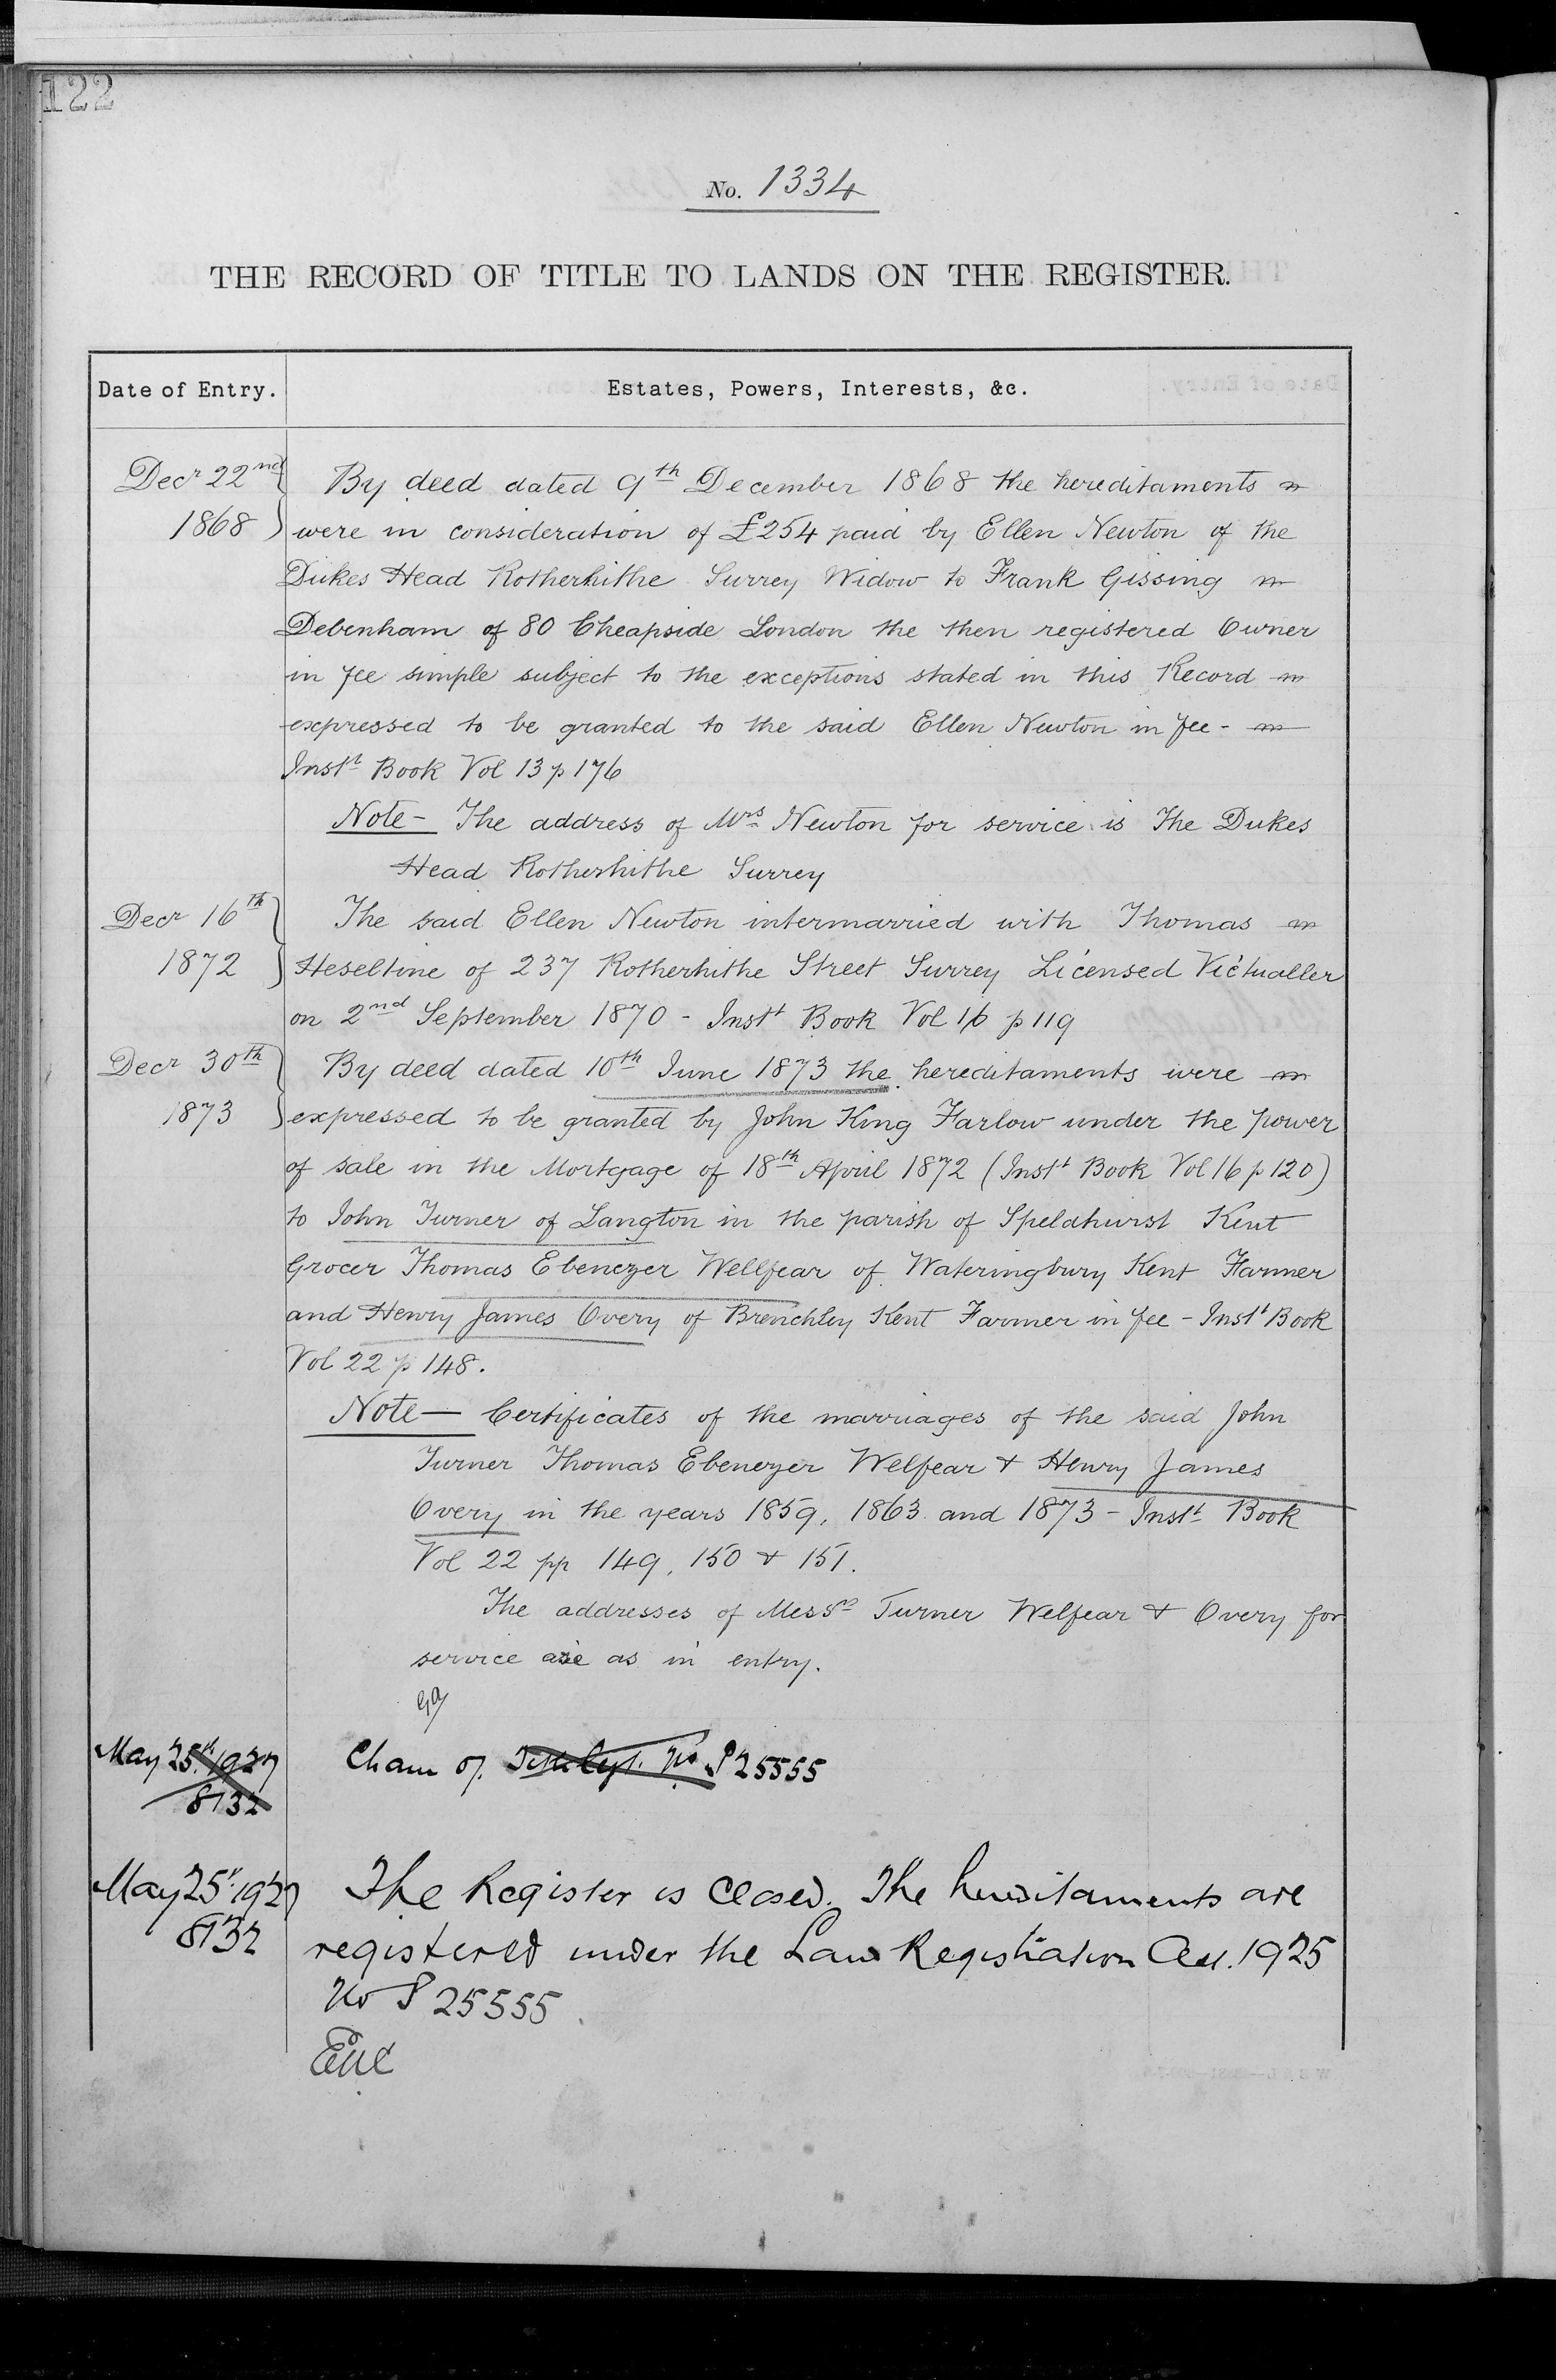 122
No. 1334
THE RECORD OF TITLE TO LANDS ON THE REGISTER.
Date of Entry.
Estates, Powers, Interests, &c.
Decr 22nd 1868
By deed dated 9th December 1868 the hereditaments
were in consideration of £254 paid by Ellen Newton of the
Dukes Head Rotherhithe Surrey Widow to Frank Gissing
Debenham of 80 Cheapside London the then registered Owner
in fee simple subject to the exceptions stated in this Record
expressed to be granted to the said Ellen Newton in fee -
Instt Book Vol 13 p 176
Note - The address of Mrs Newton for service is The Dukes
Head Rotherhithe Surrey
Decr 16th 1872
The said Ellen Newton intermarried with Thomas
Heseltine of 237 Rotherhithe Street Surrey Licensed Victualler
on 2nd September 1870 - Instt Book Vol 16 p 119
Decr 30th 1873
By deed dated 10th June 1873 the hereditaments were
expressed to be granted by John King Farlow under the power
of sale in the Mortgage of 18th April 1872 (Instt Book Vol 16 p 120)
to John Turner of Langton in the parish of Speldhurst Kent
Grocer Thomas Ebenezer Wellfear of Wateringbury Kent Farmer
and Henry James Overy of Brenchley Kent Farmer in fee - Instt Book
Vol 22 p 148.
Note - Certificates of the marriages of the said John
Turner Thomas Ebenezer Welfear & Henry James
Overy in the years 1859, 1863 and 1873 - Instt Book
Vol 22 pp 149, 150 & 151.
The addresses of Messrs Turner Welfear & Overy for
service are as in entry.
May 25th 1927
8132
of No P25555
May 25th 1927
8132
The Register is closed. The hereditaments are
registered under the Land Registration Act. 1925
No P 25555